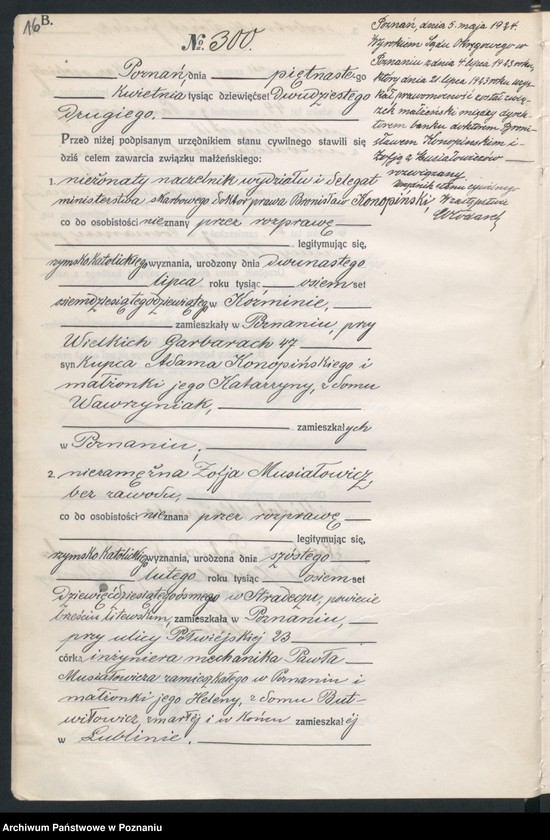 16 B.
№ 300.
Poznań dnia piętnastego
kwietnia tysiąc dziewięćset dwudziestego
drugiego.
Przed niżej podpisanym urzędnikiem stanu cywilnego stawili się
dziś celem zawarcia związku małżeńskiego:
1. nieżonaty naczelnik wydziału i delegat
ministerstwa skarbowego doktór prawa Bronisław Konopiński,
co do osobistości nieznany przez rozprawę
legitymując się,
rzymsko katolickiego wyznania, urodzony dnia dwunastego
lipca, roku tysiąc osiemset
osiemdziesiątego dziewiątego w Koźminie,
zamieszkały w Poznaniu, przy
Wielkich Garbarach 47
syn kupca Adama Konopińskiego i
małżonki jego Katarzyny, z domu
Wawrzyniak,
zamieszkałych
w Poznaniu,
2. niezamężna Zofja Musiałowicz,
bez zawodu,
co do osobistości nieznana przez rozprawę
legitymując się,
rzymsko katolickiego wyznania, urodzona dnia szóstego
lutego roku tysiąc osiemset
dziewięćdziesiątego ósmego w Stradeczu, powiecie
brześciu litewskim, zamieszkała w Poznaniu,
przy ulicy Półwiejskiej 23
córka inżyniera mechanika Pawła
Musiałowicza zamieszkałego w Poznaniu i
małżonki jego Heleny, z domu But-
wiłowicz, zmarłej i w końcu zamieszkałej
w Lublinie.
Poznań, dnia 5. maja 1924.
Wyrokiem Sądu Okręgowego w
Poznaniu z dnia 4. lipca 1923 roku,
który dnia 21. lipca 1923 roku uzys-
kał prawomocność został zwią-
zek małżeński między dyrek-
torem banku doktorem Broni-
sławem Konopińskim i
Zofją z Musiałowiczów
rozwiązany.
Urzędnik stanu cywilnego
W zastępstwie
Archiwum Państwowe w Poznaniu